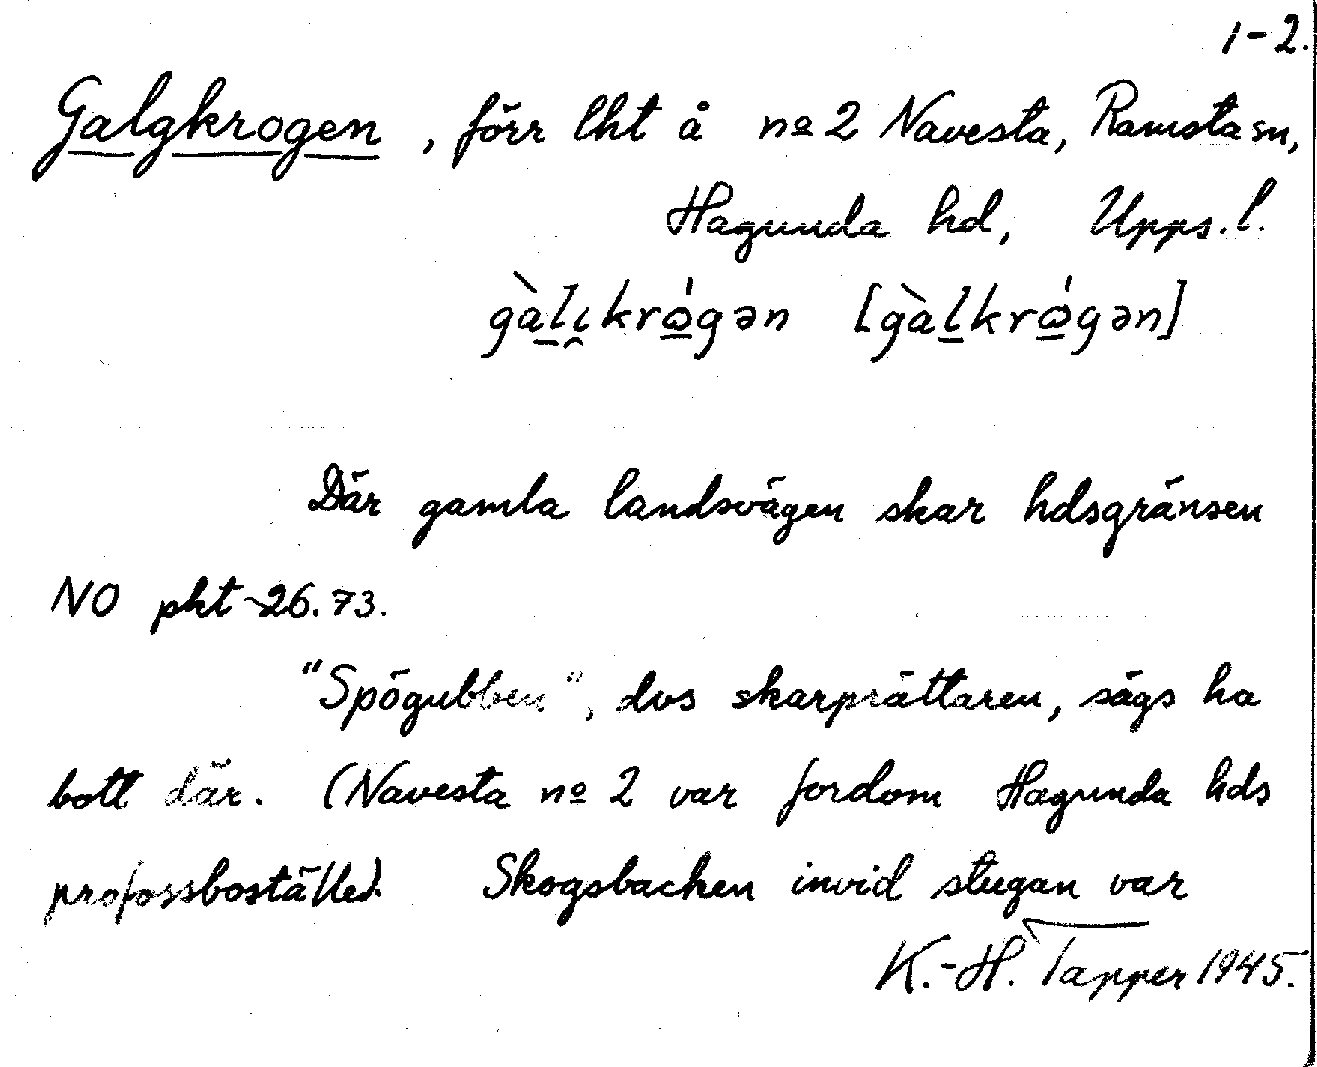 1-2.
Galgkrogen, förr lht å nº 2 Navesta, Ramsta sn,
Hagunda hd, Upps. l.
Där gamla landsvägen skar hdsgränsen
NO pkt 26.73.
"Spögubben", dvs skarprättaren, sägs ha
bott där. (Navesta nº 2 var fordom Hagunda hds
profossboställe). Skogsbacken invid stugan var
K.-H. Tapper 1945.